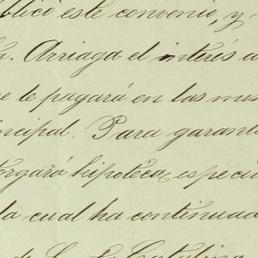 blico este convenio, y
. Arriaga el interes a
e le pagará en las mis
ncipal. Para garant
torgará hipoteca especi
la cual ha continuad
de L. E. Catalina